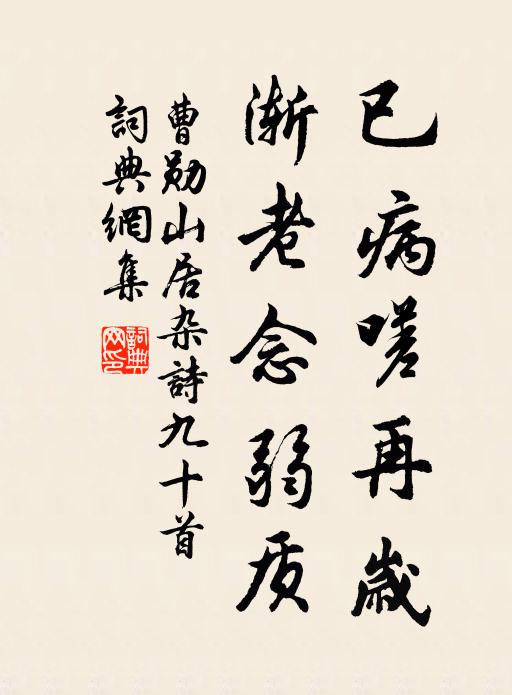 已病嗟再歲
漸老念弱质
曹勛山居杂詩九十首
詞典網集
詞典网印